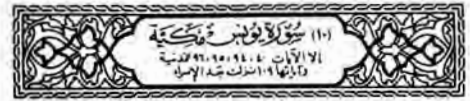 (١٠) سُورَةِ يُونسَ مَكيَّة
إلا الآيات ٤٠، ٩٤، ٩٥، ٩٦ فمدنية
وآياتها ١٠٩ نزلت بعد الإسراء